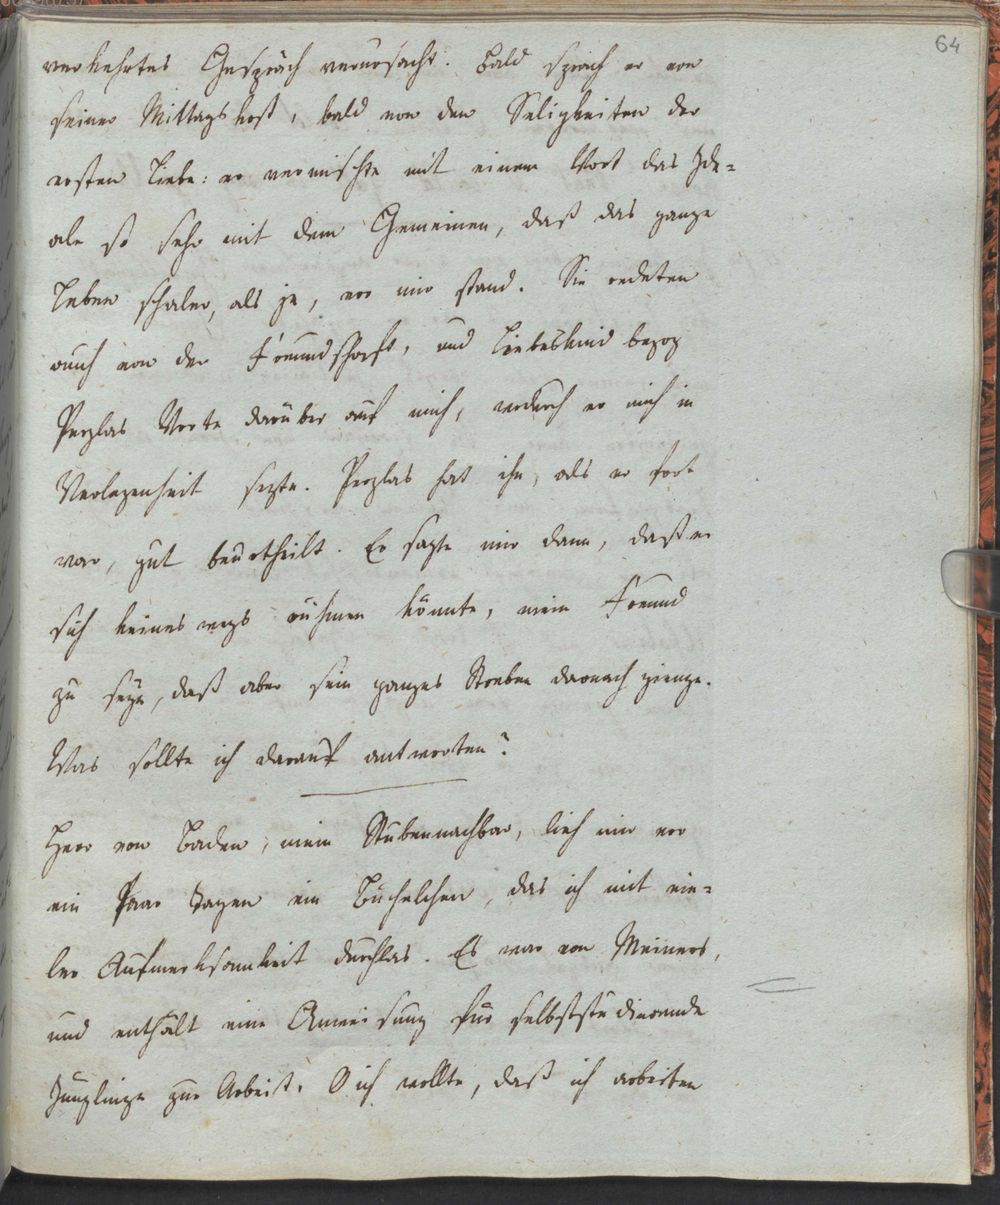 64
verkehrtes Gespräch verursacht. Bald sprach er von
seiner Mittagskost, bald von den Seligkeiten der
ersten Liebe: er vermischte mit einem Wort das Ide-
ale so sehr mit dem Gemeinen, daß das ganze
Leben schaler, als je, vor mir stand. Sie redeten
auch von der Freundschaft, und Liebeskind bezog
Perglas Worte darüber auf mich, wodurch er mich in
Verlegenheit sezte. Perglas hat ihn, als er fort
war, gut beurtheilt. Er sagte mir dann, daß er
sich keineswegs rühmen könnte, mein Freund
zu seyn, daß aber sein ganzes Streben darnach gienge.
Was sollte ich darauf antworten?
Herr von Baden, mein Stubennachbar, lieh mir vor
ein Paar Tagen ein Büchelchen, das ich mit vie-
ler Aufmerksamkeit durchlas. Es war von Meiners,
und enthält eine Anweisung für selbststudierende
Jünglinge zur Arbeit. O ich wollte, daß ich arbeiten